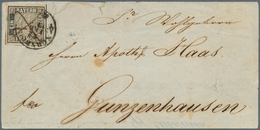 BAYERN
Sr. Wohlgeboren
Herrn Apoth. Haas
in
Gunzenhausen